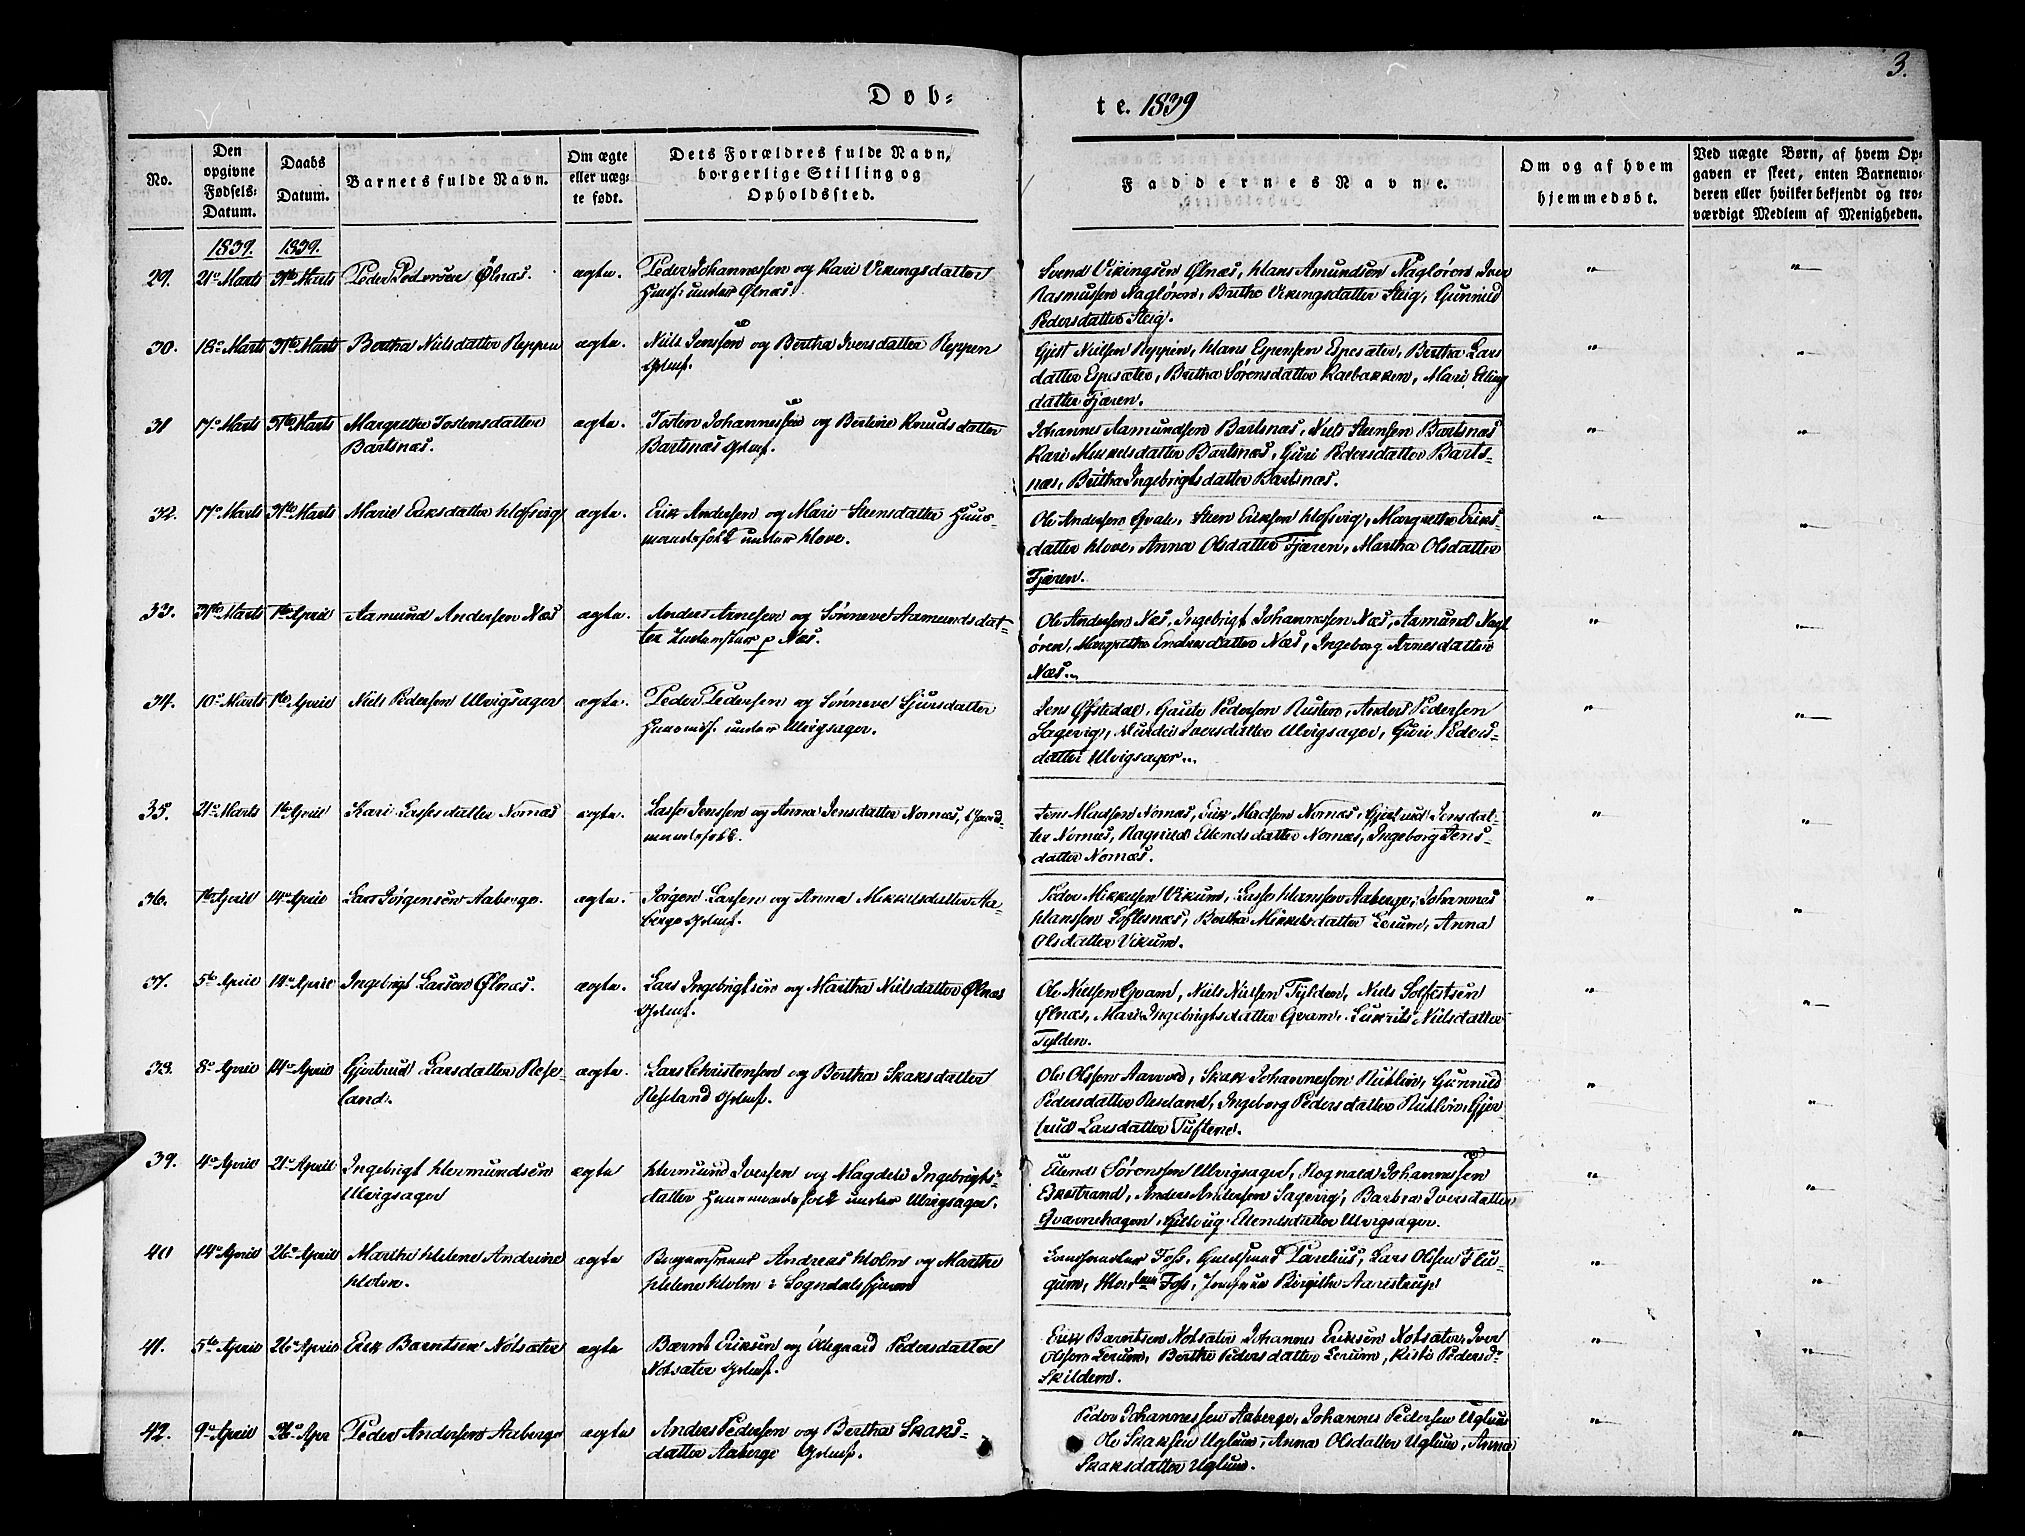 3.
Døb-
te. 1839
No.
Den opgivne Fødsels-Datum.
Daabs Datum.
Barnets fulde Navn.
Om ægte eller uæg-te født.
Dets Forældres fulde Navn, borgerlige Stilling og Opholdssted.
Faddernes Navne.
Om og af hvem hjemmedøbt.
Ved uægte Børn, af hvem Op-gaven er skeet, enten Barnemo-deren eller hvilket bekjendt og tro-værdigt Medlem af Menigheden.
1839. 1839.
29. 21de Marts 31te Marts Peder Pedersen Ølnæs. ægte. Peder Johannessen og Kari Vikingsdatter
Huusf: under Ølnæs.
Svend Vikingsen Ølnæs, Hans Amundsen Nagløren Iver
Rasmussen Nagløren, Brithe Vikingsdatter Steig, Gunnild
Pedersdatter Steig.
30. 18de Marts 31te Marts Bertha Nielsdatter Reppen ægte. Niels Jenssen og Bertha Iversdatter Reppen
Gdmf.
Gjest Nielsen Reppen, Hans Espensen Espesæter, Bertha Lars
datter Espesæter, Brithe Sørensdatter Kalbakken, Mari Elling
datter Fjæren.
31 17de Marts 31te Marts Margrethe Jostensdatter
Bartsnæs.
ægte. Josten Johannessen og Bertine Knudsdatter
Bartsnæs Gdmf.
Johannes Aamundsen Bartsnæs, Niels Steensen Bartsnæs
Kari Mikkelsdatter Bartsnæs, Guri Pedersdatter Barts-
næs, Brithe Ingebrigtsdatter Bartsnæs.
32. 17de Marts 31te Marts Marie Eriksdatter Hofsvig ægte. Erik Andersen og Mari Steensdatter Huus-
mandsfolk under Hove.
Ole Andersen Qvale, Steen Eriksen Hofsvig, Margrethe Eriks
datter Hove, Anna Olsdatter Fjæren, Martha Olsdatter
Fjæren.
33. 31te Marts 1te April Aamund Andersen Næs ægte. Anders Arnesen og Sønneve Aamundsdat-
ter p Næs.
Ole Andersen Næs, Ingebrigt Johannessen Næs, Aamund Nagl
øren, Margrethe Endresdatter Næs, Ingeborg Arnesdatter
Næs.
34. 10de Marts 1te April Niels Pedersen Ulvigsager ægte. Peder Pedersen og Sønneve Sjursdatter
Huusmdsf. under Ulvigsager.
Jens Øfstedal, Gaute Pedersen Rusten, Anders Pedersen
Sagevig, Iversdatter Ulvigsager, Guri Peders-
datter Ulvigsager.
35. 21de Marts 1te April Kari Lassesdatter Nornæs ægte. Lasse Jenssen og Anna Jensdatter Nornæs, Gaard-
mandsfolk.
Jens Madsen Nornæs, Erik Madsen Nornæs, Gjertrud Jensdat-
ter Nornæs, Ragnild Ellendsdatter Nornæs, Ingeborg Jens-
datter Nornæs.
36. 1te April 14de April Lars Jørgensen Aaberge. ægte. Jørgen Larsen og Anna Mikkelsdatter Aa-
berge Gdmf.
Peder Mikkelsen Vikum, Lasse Hanssen Aaberge, Johannes
Hanssen Loftesnæs, Bertha Mikkelsdatter Lerum, Anna
Olsdatter Vikum.
37. 5te April 14de April Ingebrigt Larsen Ølnæs. ægte. Lars Ingebrigtsen og Martha Nielsdatter Ølnæs
Gdmf.
Ole Nielsen Qvam, Niels Nielsen Tylden, Niels Solfestsen
Ølnæs, Mari Ingebrigtsdatter Qvam, Nielsdatter
Tylden.
38. 8de April 14de April Gjertrud Larsdatter Rese-
land.
ægte. Lars Christensen og Bertha Skaksdatter
Reseland Gdmf.
Ole Olssen Aarvold, Skak Johannessen Nublin, Gunnild
Pedersdatter Reseland, Ingeborg Pedersdatter Nublin, Gjer
trud Larsdatter Tuftene.
39. 4de April 21de April Ingebrigt Hermundsen
Ulvigsager
ægte Hermund Iversen og Magdele Ingebrigts-
datter Huusmandsfolk under Ulvigsager.
Ellend Sørenssen Ulvigsager, Rognald Johannessen
Ekestrand, Anders Andersen Sagevig, Barbra Iversdatter
Qvarnehagen, Ellendsdatter Ulvigsager.
40 14de April 26de April Marthe Helene Andrine
Holm.
ægte Andreas Holm og Marthe
Helene Holm i Sogndalsfjæren
Foss, Parelius, Lars Olssen Flu-
gum, Foss, Jomfrue Birgithe Aarestrup
41. 5te April 26de April Erik Barntsen Notsæter ægte Bærnt Eriksen og Ødegaard Pedersdatter
Notsæter Gdmf.
Erik Barntsen Notsæter Johannes Eriksen Notsæter, Iver
Olssen Lerum, Berthe Pedersdatter Lerum, Kisti Pedersd
Skildem.
42. 9de April 26 Apr Peder Andersen Aaberge ægte Anders Pedersen og Bertha Skaks-
datter Aaberge Gdmf.
Peder Johannessen Aaberge, Johannes Pedersen Uglum
Ole Skaksen Uglum, Anna Olsdatter Uglum, Anna
Skaksdatter Uglum.